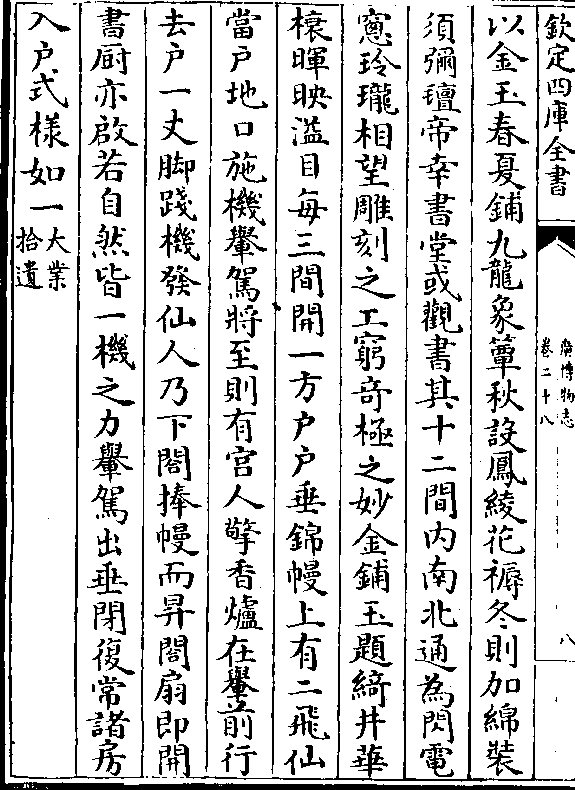 欽定四庫全書
廣博物志
卷二十八
八
以金玉春夏鋪九龍象簟秋設鳳綾花褥冬則加綿裝
須彌氊帝幸書堂或觀書其十二間内南北通為閃電
窻玲瓏相望雕刻之工窮奇極之妙金鋪玉題綺井華
榱暉映溢目每三間開一方戶戶垂錦幔上有二飛仙
當戶地口施機轝駕將至則有宫人擎香爐在轝前行
去戶一丈脚踐機發仙人乃下閣捧幔而昇閣扇即開
書厨亦啟若自然皆一機之力轝駕出垂閉復常諸房
入戶式樣如一大業
拾遺